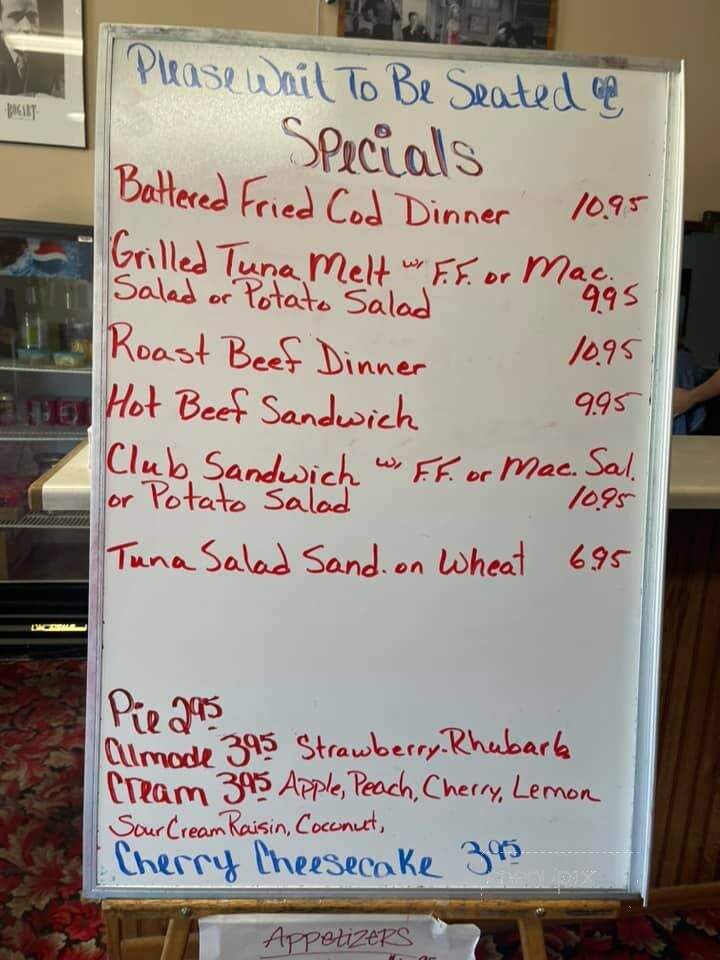 BOGART
Please Wait To Be Seated
Specials
Battered Fried Cod Dinner 10.95
Grilled Tuna Melt w/ F.F. or Mac.
Salad or Potato Salad 9.95
Roast Beef Dinner 10.95
Hot Beef Sandwich 9.95
Club Sandwich w/ F.F. or Mac. Sal.
or Potato Salad 10.95
Tuna Salad Sand. on Wheat 6.95
Pie 2.95
Alamode 3.95 Strawberry-Rhubarb
Cream 3.95 Apple, Peach, Cherry, Lemon
Sour Cream Raisin, Coconut,
Cherry Cheesecake 3.95
APPETIZERS